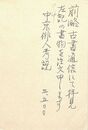 前略 古書通信にて拝見
左記の書物を注文申します
中京俳人考説
三、五、〇〇